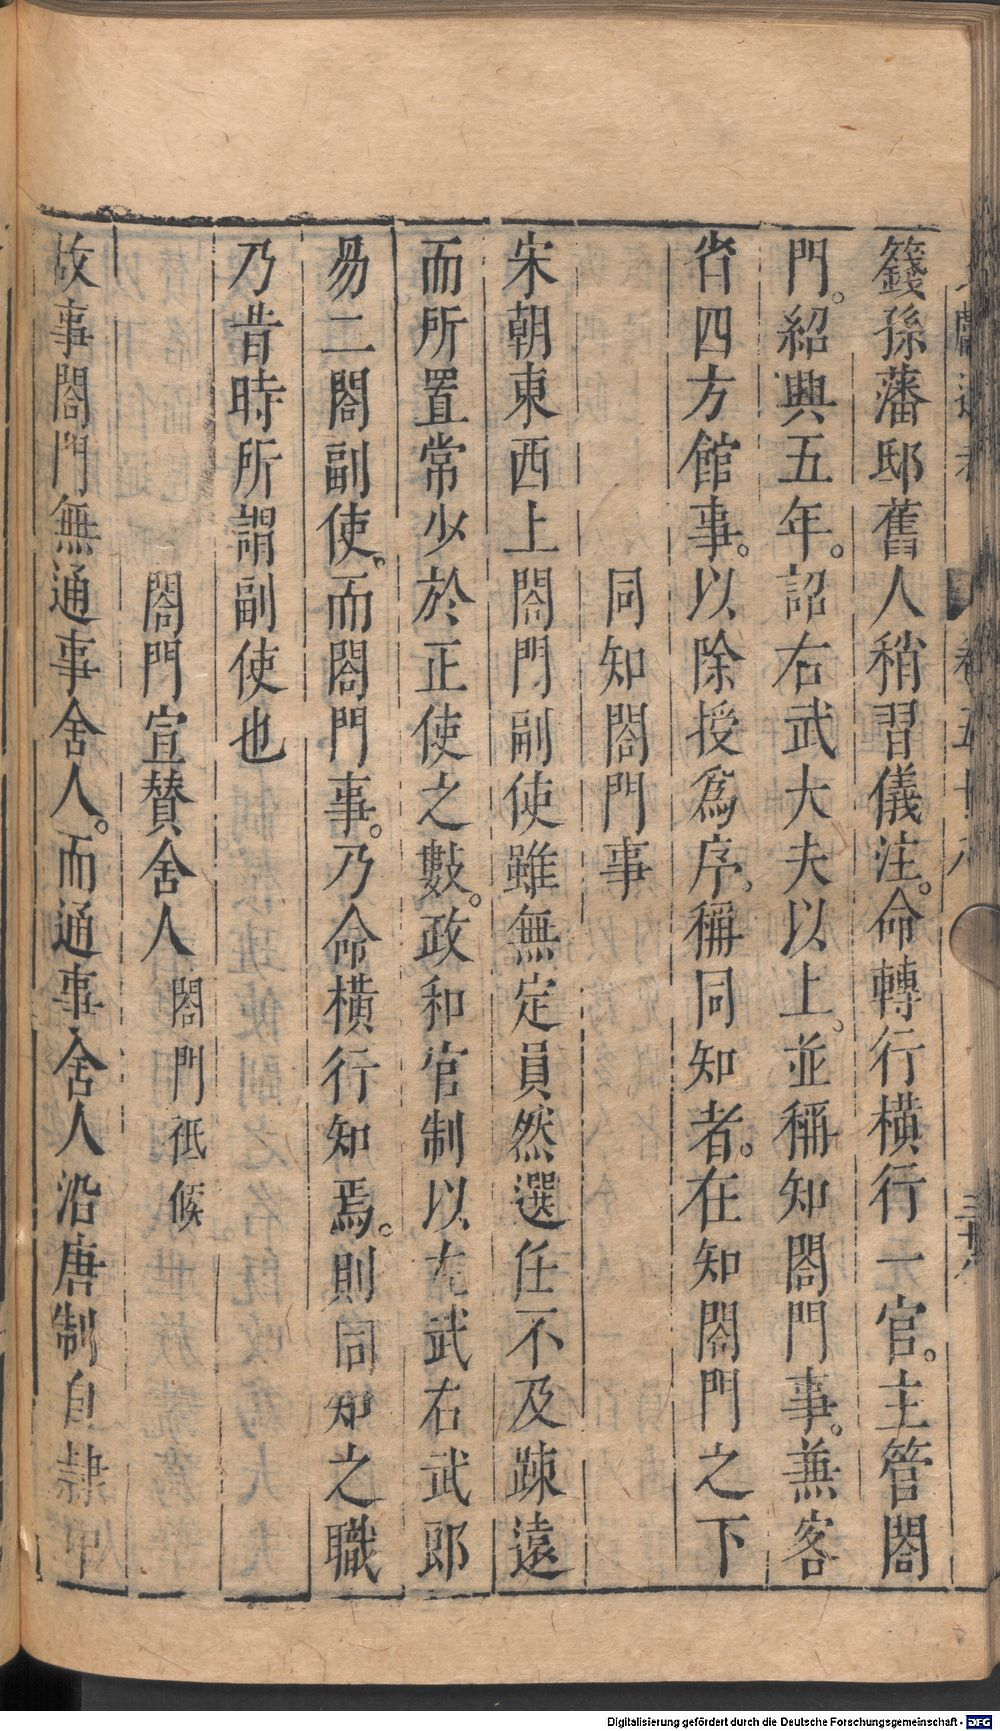 籛孫藩邸舊人稍習儀注。命轉行橫行一官。主管閤
門。紹興五年。詔右武大夫以上。並稱知閤門事。兼客
省四方館事。以除授爲序。稱同知者。在知閤門之下
同知閤門事
宋朝東西上閤門副使雖無定員然選任不及踈遠
而所置常少於正使之數。政和官制以左武右武郎
易二閤副使。而閤門事。乃命橫行知焉。則同知之職
乃昔時所謂副使也
閤門宣賛舍人 閤門祗候
故事閤門無通事舍人。而通事舍人沿唐制自隸中
Digitalisierung gefördert durch die Deutsche Forschungsgemeinschaft - DFG